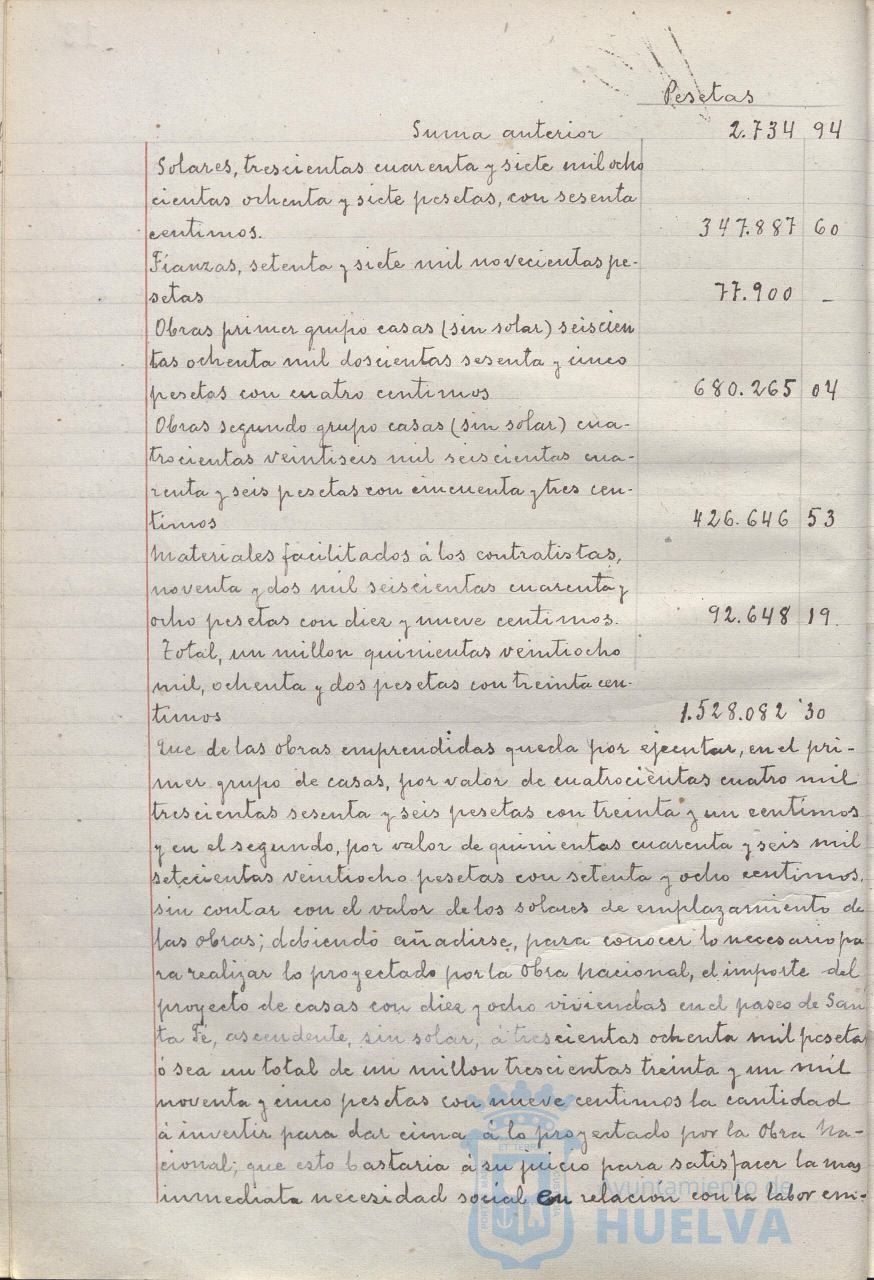 Pesetas
Suma anterior 2.734 94
Solares, trescientas cuarenta y siete mil ocho
cientas ochenta y siete pesetas, con sesenta
centimos. 347.887 60
Fianzas, setenta y siete mil novecientas pe-
setas 77.900 -
Obras primer grupo casas (sin solar) seiscien
tas ochenta mil doscientas sesenta y cinco
pesetas con cuatro centimos 680.265 04
Obras segundo grupo casas (sin solar) cua-
trocientas veintiseis mil seiscientas cua-
renta y seis pesetas con cincuenta y tres cen-
timos 426.646 53
Materiales facilitados á los contratistas,
noventa y dos mil seiscientas cuarenta y
ocho pesetas con diez y nueve centimos. 92.648 19.
Total, un millon quinientas veintiocho
mil, ochenta y dos pesetas con treinta cen-
timos 1.528.082 '30
Que de las obras emprendidas queda por ejecutar, en el pri-
mer grupo de casas, por valor de cuatrocientas cuatro mil
trescientas sesenta y seis pesetas con treinta y un centimos
y en el segundo, por valor de quinientas cuarenta y seis mil
setecientas veintiocho pesetas con setenta y ocho centimos,
sin contar con el valor de los solares de emplazamiento de
las obras; debiendo añadirse, para conocer lo necesario pa
ra realizar lo proyectado por la Obra Nacional, el importe del
proyecto de casas con diez y ocho viviendas en el paseo de San
ta Fé, ascendente, sin solar, á trescientas ochenta mil peseta
ó sea un total de un millon trescientas treinta y un mil
noventa y cinco pesetas con nueve centimos la cantidad
á invertir para dar cima á lo proyectado por la Obra Na-
cional; que esto bastaria á su juicio para satisfacer la mas
inmediata necesidad social en relacion con la labor em-
Ayuntamiento de
HUELVA